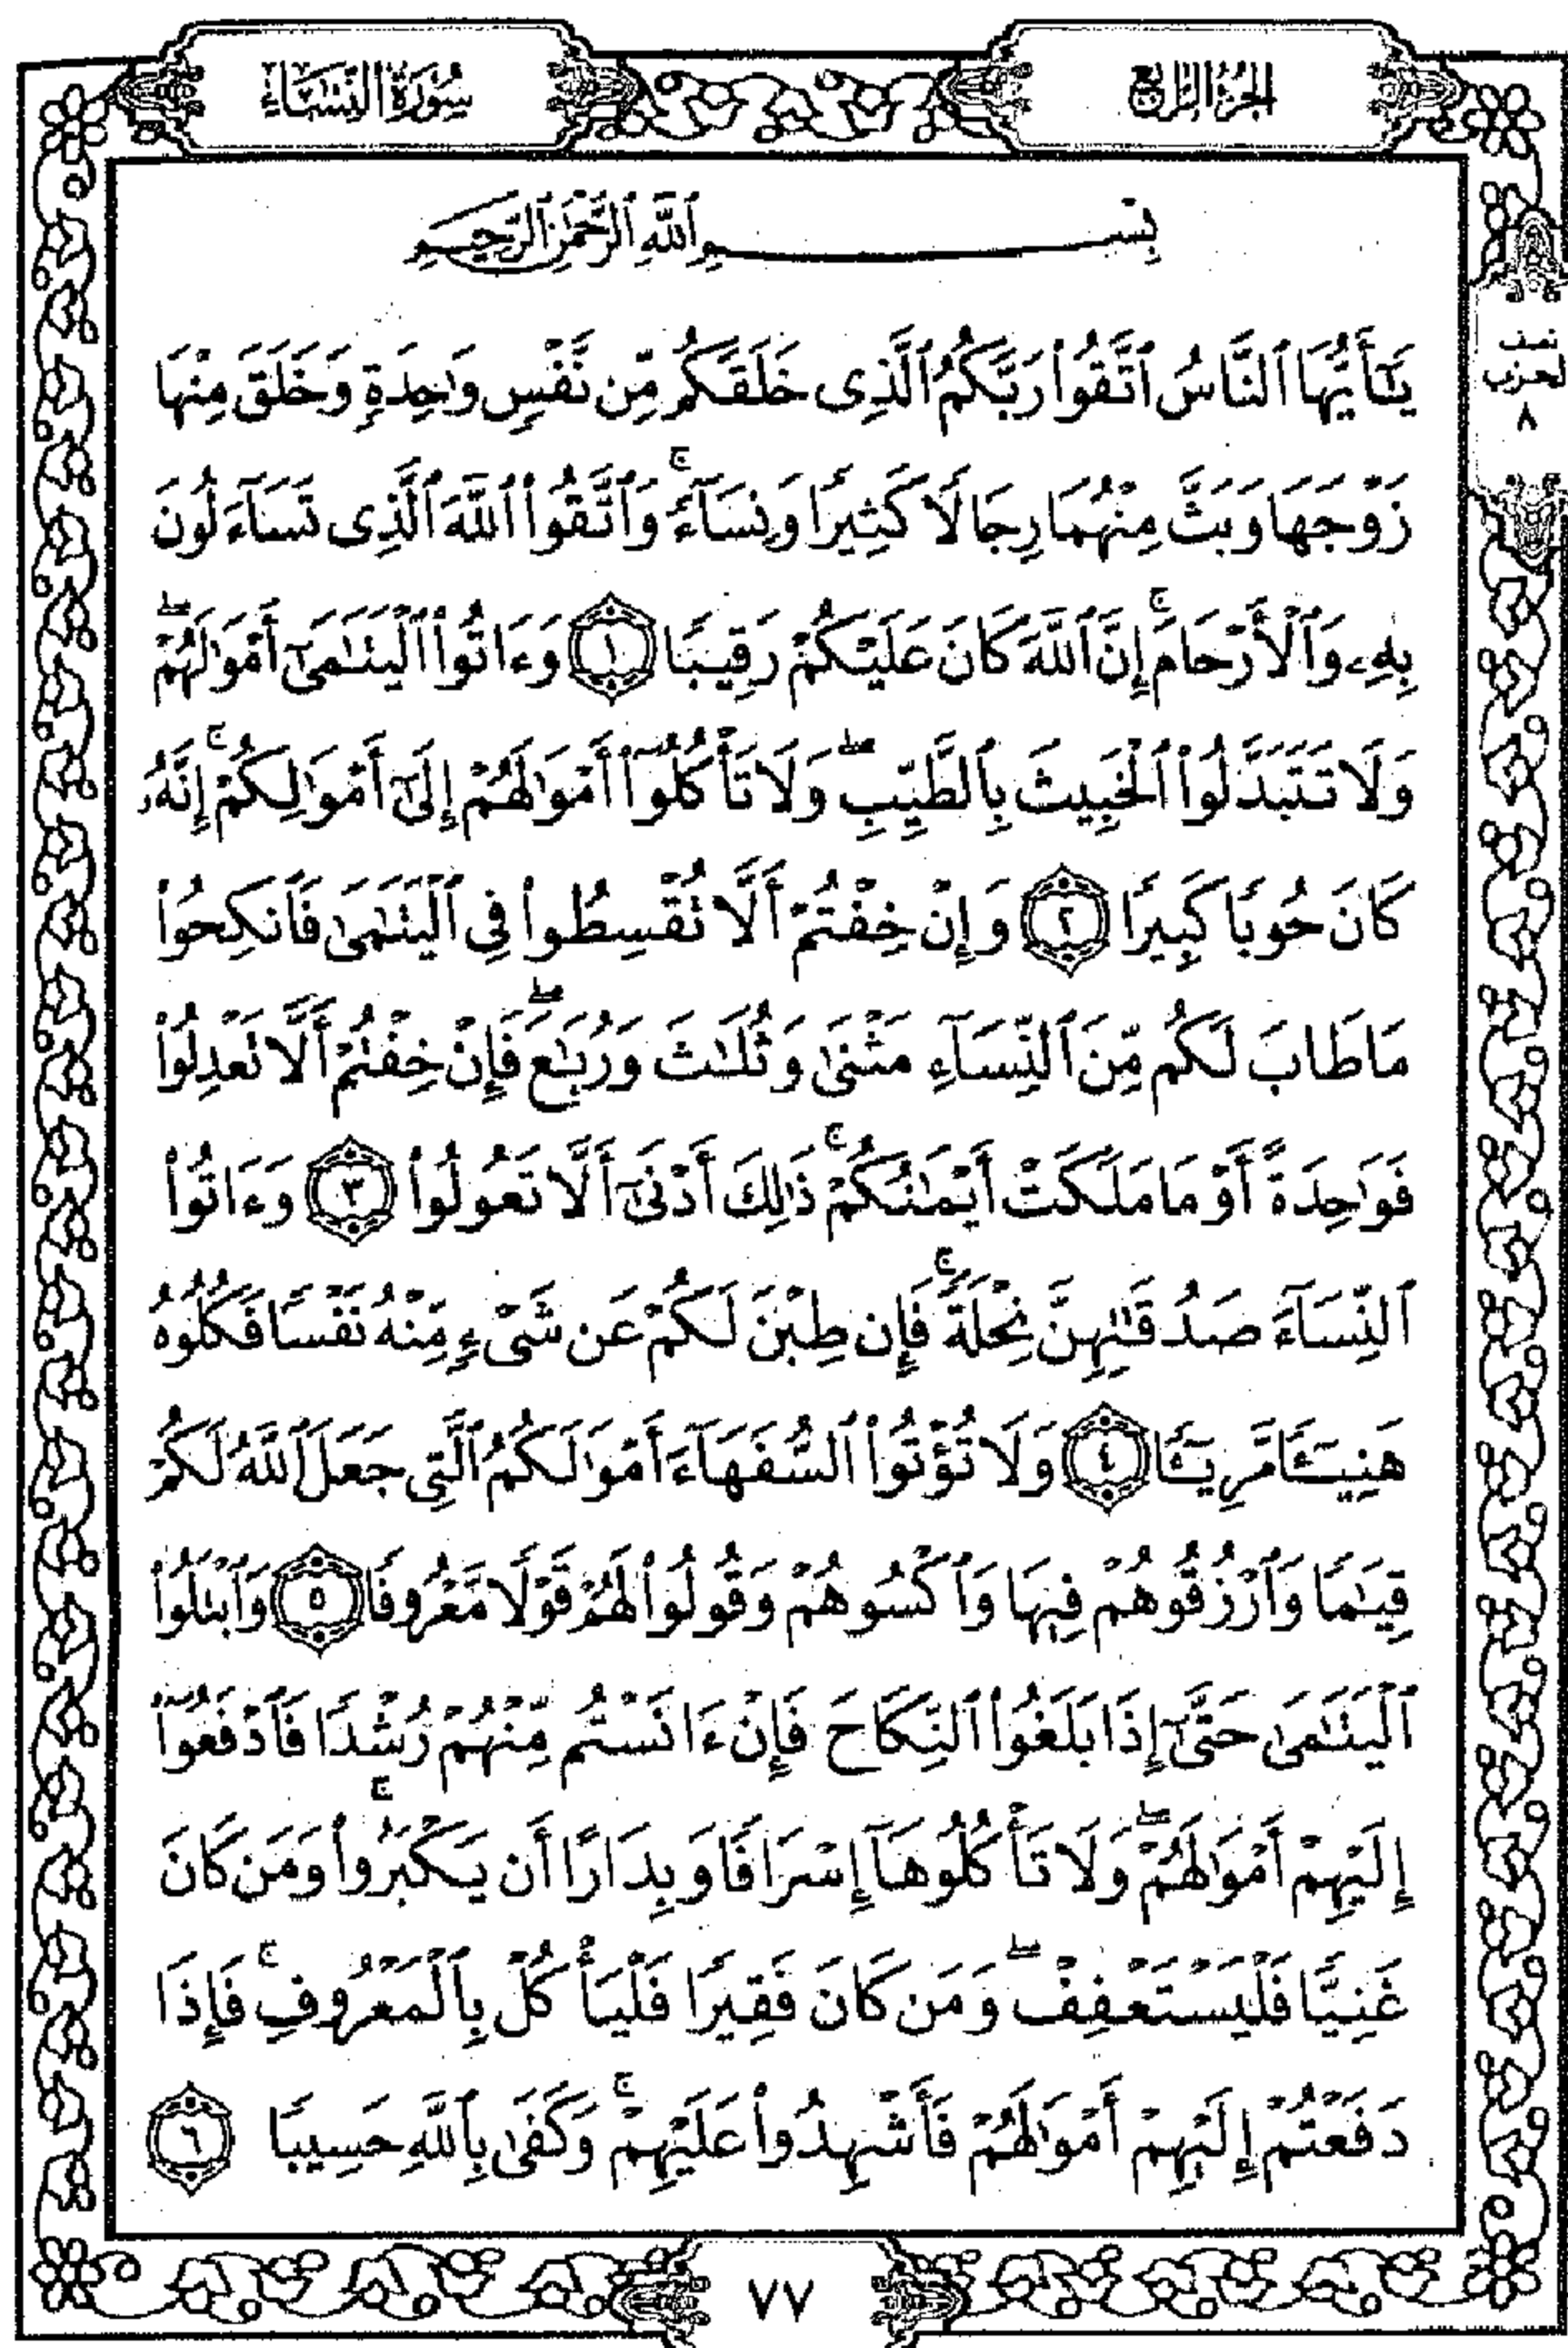 الجزء الرابع
سورة النساء
بِسْمِ ٱللَّهِ ٱلرَّحْمَٰنِ ٱلرَّحِيمِ
نصف
الحزب
٨
يَٰٓأَيُّهَا ٱلنَّاسُ ٱتَّقُوا۟ رَبَّكُمُ ٱلَّذِى خَلَقَكُم مِّن نَّفْسٍ وَٰحِدَةٍ وَخَلَقَ مِنْهَا
زَوْجَهَا وَبَثَّ مِنْهُمَا رِجَالًا كَثِيرًا وَنِسَآءً ۚ وَٱتَّقُوا۟ ٱللَّهَ ٱلَّذِى تَسَآءَلُونَ
بِهِۦ وَٱلْأَرْحَامَ ۚ إِنَّ ٱللَّهَ كَانَ عَلَيْكُمْ رَقِيبًا ١ وَءَاتُوا۟ ٱلْيَتَٰمَىٰٓ أَمْوَٰلَهُمْ ۖ
وَلَا تَتَبَدَّلُوا۟ ٱلْخَبِيثَ بِٱلطَّيِّبِ ۖ وَلَا تَأْكُلُوٓا۟ أَمْوَٰلَهُمْ إِلَىٰٓ أَمْوَٰلِكُمْ ۚ إِنَّهُۥ
كَانَ حُوبًا كَبِيرًا ٢ وَإِنْ خِفْتُمْ أَلَّا تُقْسِطُوا۟ فِى ٱلْيَتَٰمَىٰ فَٱنكِحُوا۟
مَا طَابَ لَكُم مِّنَ ٱلنِّسَآءِ مَثْنَىٰ وَثُلَٰثَ وَرُبَٰعَ ۖ فَإِنْ خِفْتُمْ أَلَّا تَعْدِلُوا۟
فَوَٰحِدَةً أَوْ مَا مَلَكَتْ أَيْمَٰنُكُمْ ۚ ذَٰلِكَ أَدْنَىٰٓ أَلَّا تَعُولُوا۟ ٣ وَءَاتُوا۟
ٱلنِّسَآءَ صَدُقَٰتِهِنَّ نِحْلَةً ۚ فَإِن طِبْنَ لَكُمْ عَن شَىْءٍ مِّنْهُ نَفْسًا فَكُلُوهُ
هَنِيٓـًٔا مَّرِيٓـًٔا ٤ وَلَا تُؤْتُوا۟ ٱلسُّفَهَآءَ أَمْوَٰلَكُمُ ٱلَّتِى جَعَلَ ٱللَّهُ لَكُمْ
قِيَٰمًا وَٱرْزُقُوهُمْ فِيهَا وَٱكْسُوهُمْ وَقُولُوا۟ لَهُمْ قَوْلًا مَّعْرُوفًا ٥ وَٱبْتَلُوا۟
ٱلْيَتَٰمَىٰ حَتَّىٰٓ إِذَا بَلَغُوا۟ ٱلنِّكَاحَ فَإِنْ ءَانَسْتُم مِّنْهُمْ رُشْدًا فَٱدْفَعُوٓا۟
إِلَيْهِمْ أَمْوَٰلَهُمْ ۖ وَلَا تَأْكُلُوهَآ إِسْرَافًا وَبِدَارًا أَن يَكْبَرُوا۟ ۚ وَمَن كَانَ
غَنِيًّا فَلْيَسْتَعْفِفْ ۖ وَمَن كَانَ فَقِيرًا فَلْيَأْكُلْ بِٱلْمَعْرُوفِ ۚ فَإِذَا
دَفَعْتُمْ إِلَيْهِمْ أَمْوَٰلَهُمْ فَأَشْهِدُوا۟ عَلَيْهِمْ ۚ وَكَفَىٰ بِٱللَّهِ حَسِيبًا ٦
٧٧